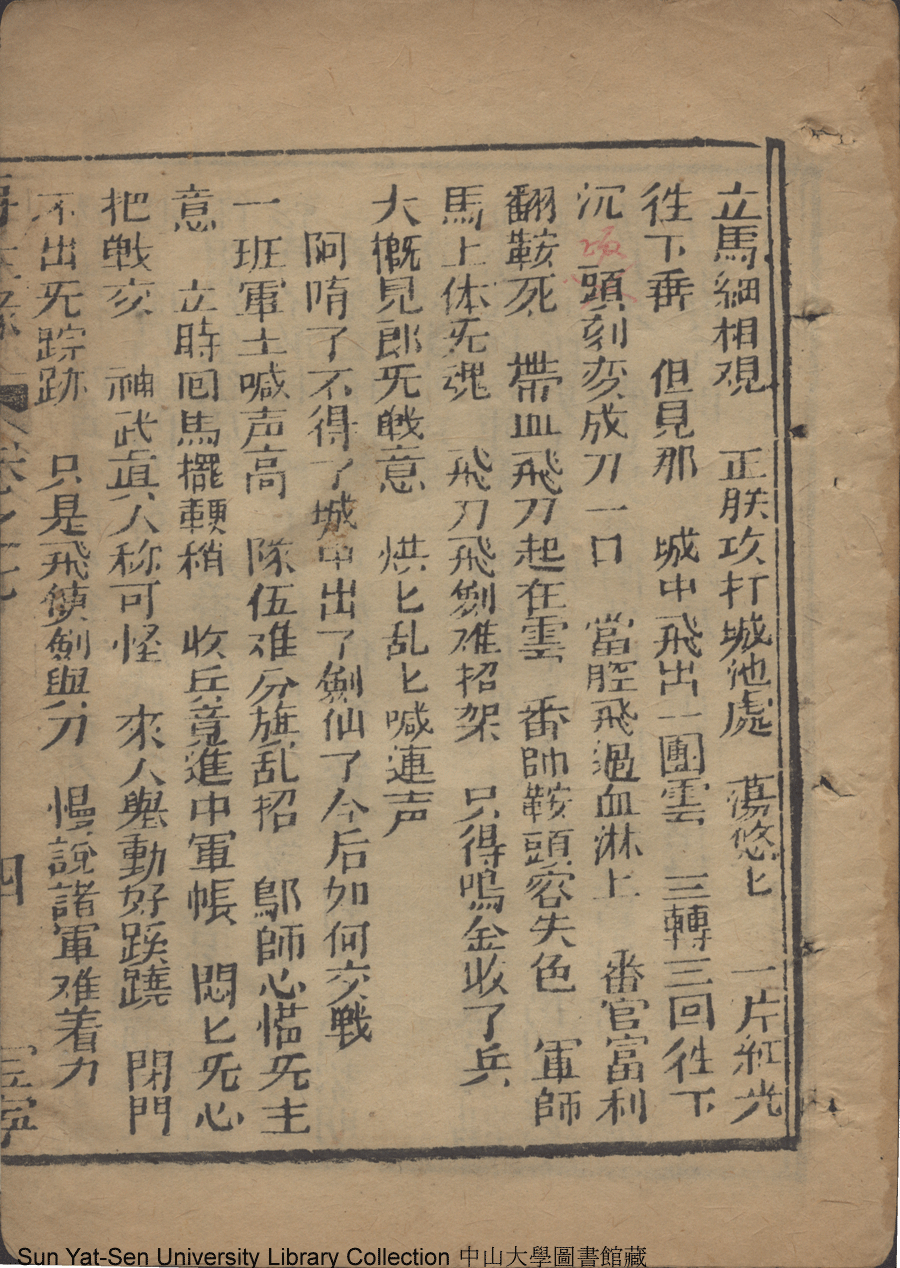 立馬細相覌 正朕攻打城池處 蕩悠匕 一片紅光
徃下垂 但見那 城中飛出一團雲 三轉三回徃下
沉 頭刻变成刀一口 當腔飛過血淋上 番官富利
翻鞍死 帶血飛刀起在雲 番帥鞍頭容失色 軍師
馬上体旡魂 飛刀飛劍难招架 只得鳴金收了兵
大概見郎旡戦意 烘匕乱匕喊連声
阿唷了不得了城中出了劍仙了今后如何交戰
一班軍士喊声高 隊伍难分旗乱招 鄔師心慌旡主
意 立時囘馬擺轅稍 收兵竟進中軍帳 悶匕旡心
把戰交 神武眞人称可怪 來人舉動好蹊蹺 閉門
不出旡踪跡 只是飛使劍與刀 慢說諸軍难着力
卷之
四
Sun Yat-Sen University Library Collection 中山大學圖書館藏